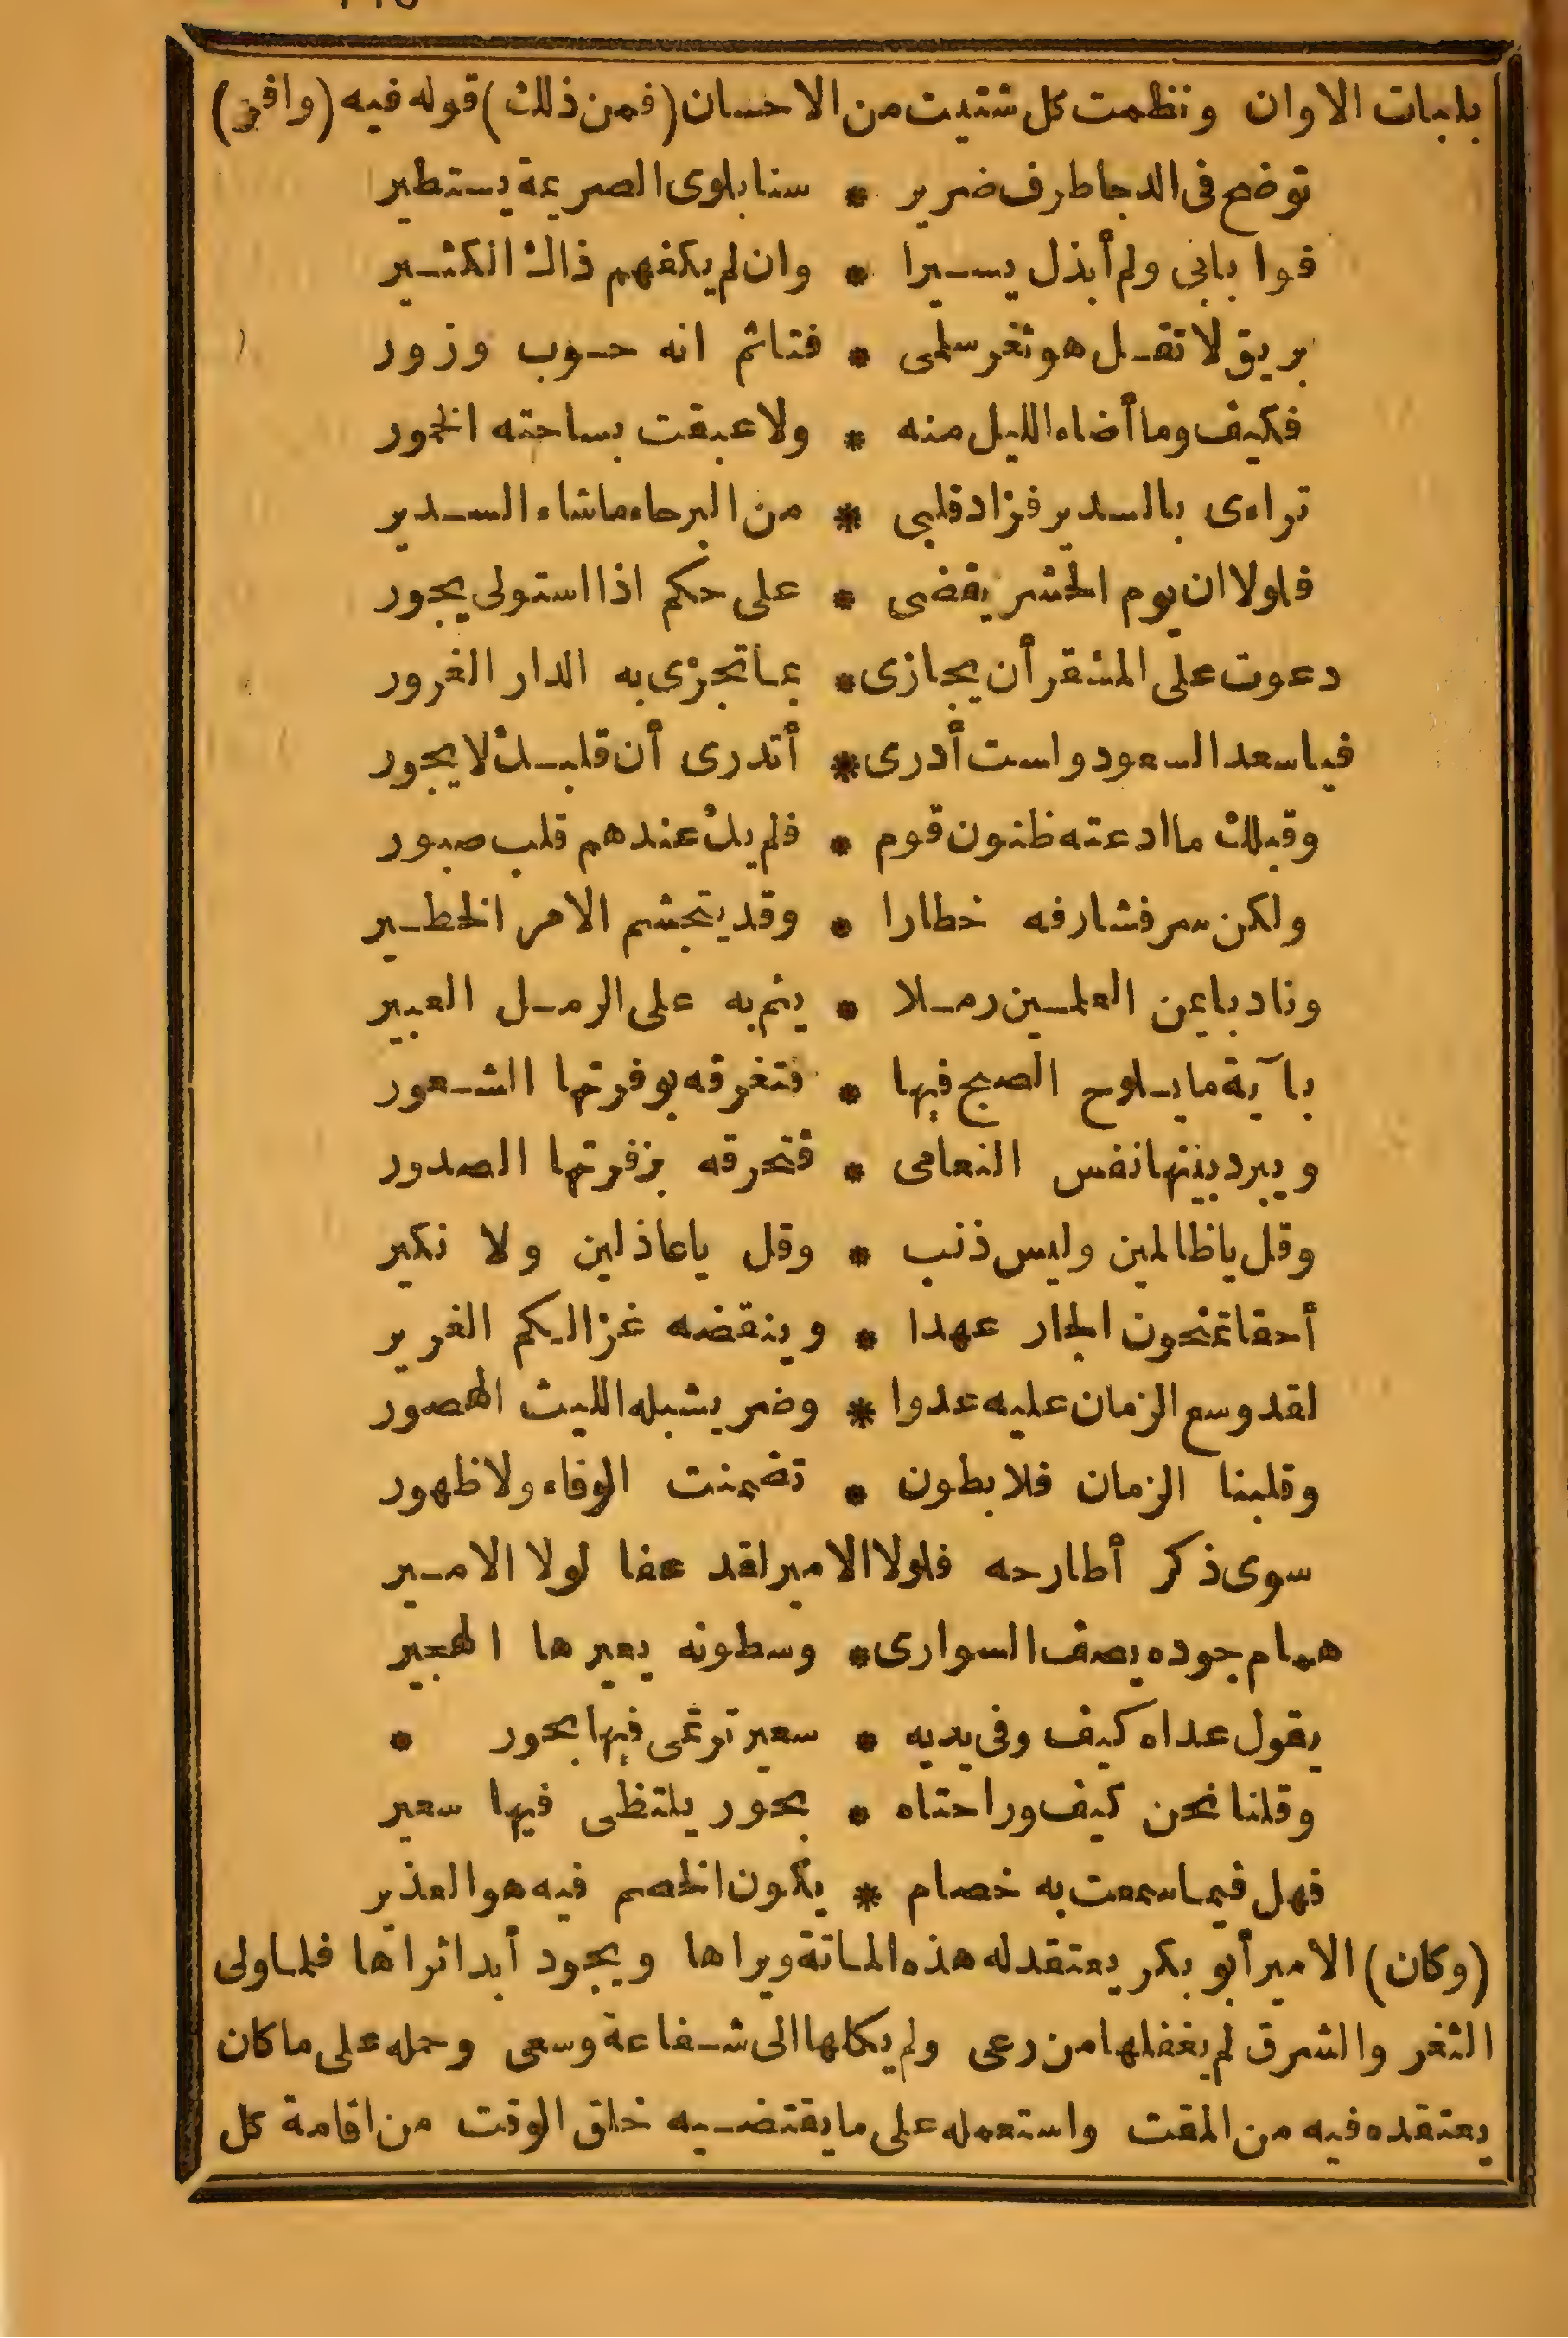 بلبات الاوان ونظمت كل شتيت من الاحسان (فمن ذلك) قوله فيه (وافر)
توضح فى الدجا طرف ضرير * سنا بلوى الصريمة يستطير
فوا بابى ولم أبذل يسيرا * وان لم يكفهم ذاك الكثير
بريق لا تقل هو ثغر سلمى * فتاثم انه حوب وزور
فكيف وما أضاء الليل منه * ولا عبقت بساحته الخمور
تراءى بالسدير فزاد قلبى * من البرحاء ما شاء السدير
فلولا ان يوم الحشر يقضى * على حكم اذا استولى يجور
دعوت على المشقر أن يجازى * بما تجزى به الدار الغرور
فيا سعد السعود واست أدرى * أتدرى أن قلبك لا يحور
وقبلك ما ادعته ظنون قوم * فلم يك عندهم قلب صبور
ولكن سر فشارفه خطارا * وقد يتجشم الامر الخطير
وناد بايمن العلمين رملا * ينم به على الرمل العبير
بآية ما يلوح الصبح فيها * فتغرقه بوفرتها الشعور
ويبرد بينها نفس النعامى * فتحرقه بزفرتها الصدور
وقل يا ظالمين وليس ذنب * وقل يا عاذلين ولا نكير
أحقا تمنحون الجار عهدا * وينقضه غزالكم الغرير
لقد وسع الزمان عليه عدوا * وضر يشبله الليث الهصور
وقلبنا الزمان فلا بطون * تضمنت الوفاء ولا ظهور
سوى ذكر أطارحه فلولا الامير لقد عفا لولا الامير
همام جوده يصف السوارى * وسطوته يعيرها الهجير
يقول عداه كيف وفى يديه * سعير ترتمى فيها بحور *
وقلنا نحن كيف وراحتاه * بحور يلتظى فيها سعير
فهل فيما سمعت به خصام * يكون الخصم فيه هو العذير
(وكان) الامير أبو بكر يعتقد له هذه الماتة ويراها ويجود أبدا ثراها فلما ولى
الثغر والشرق لم يغفلها من رعى ولم يكلها الى شفاعة وسعى وحمله على ما كان
يعتقده فيه من المقت واستعمله على ما يقتضيه خلق الوقت من اقامة كل